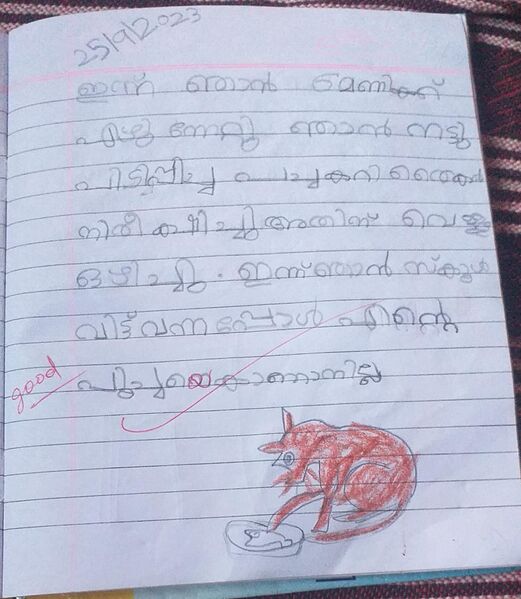 25/9/2023
ഇന്ന് ഞാൻ 6 മണിക്ക്
എഴുന്നേറ്റു ഞാൻ നട്ടു
പിടിപ്പിച്ച പച്ചകറി തൈകൾ
നിരീക്ഷിച്ചു അതിന് വെള്ളം
ഒഴിച്ചു. ഇന്ന് ഞാൻ സ്കൂൾ
വിട്ട് വന്നപ്പോൾ എൻ്റെ
good പൂച്ചയെ കാണാനില്ല